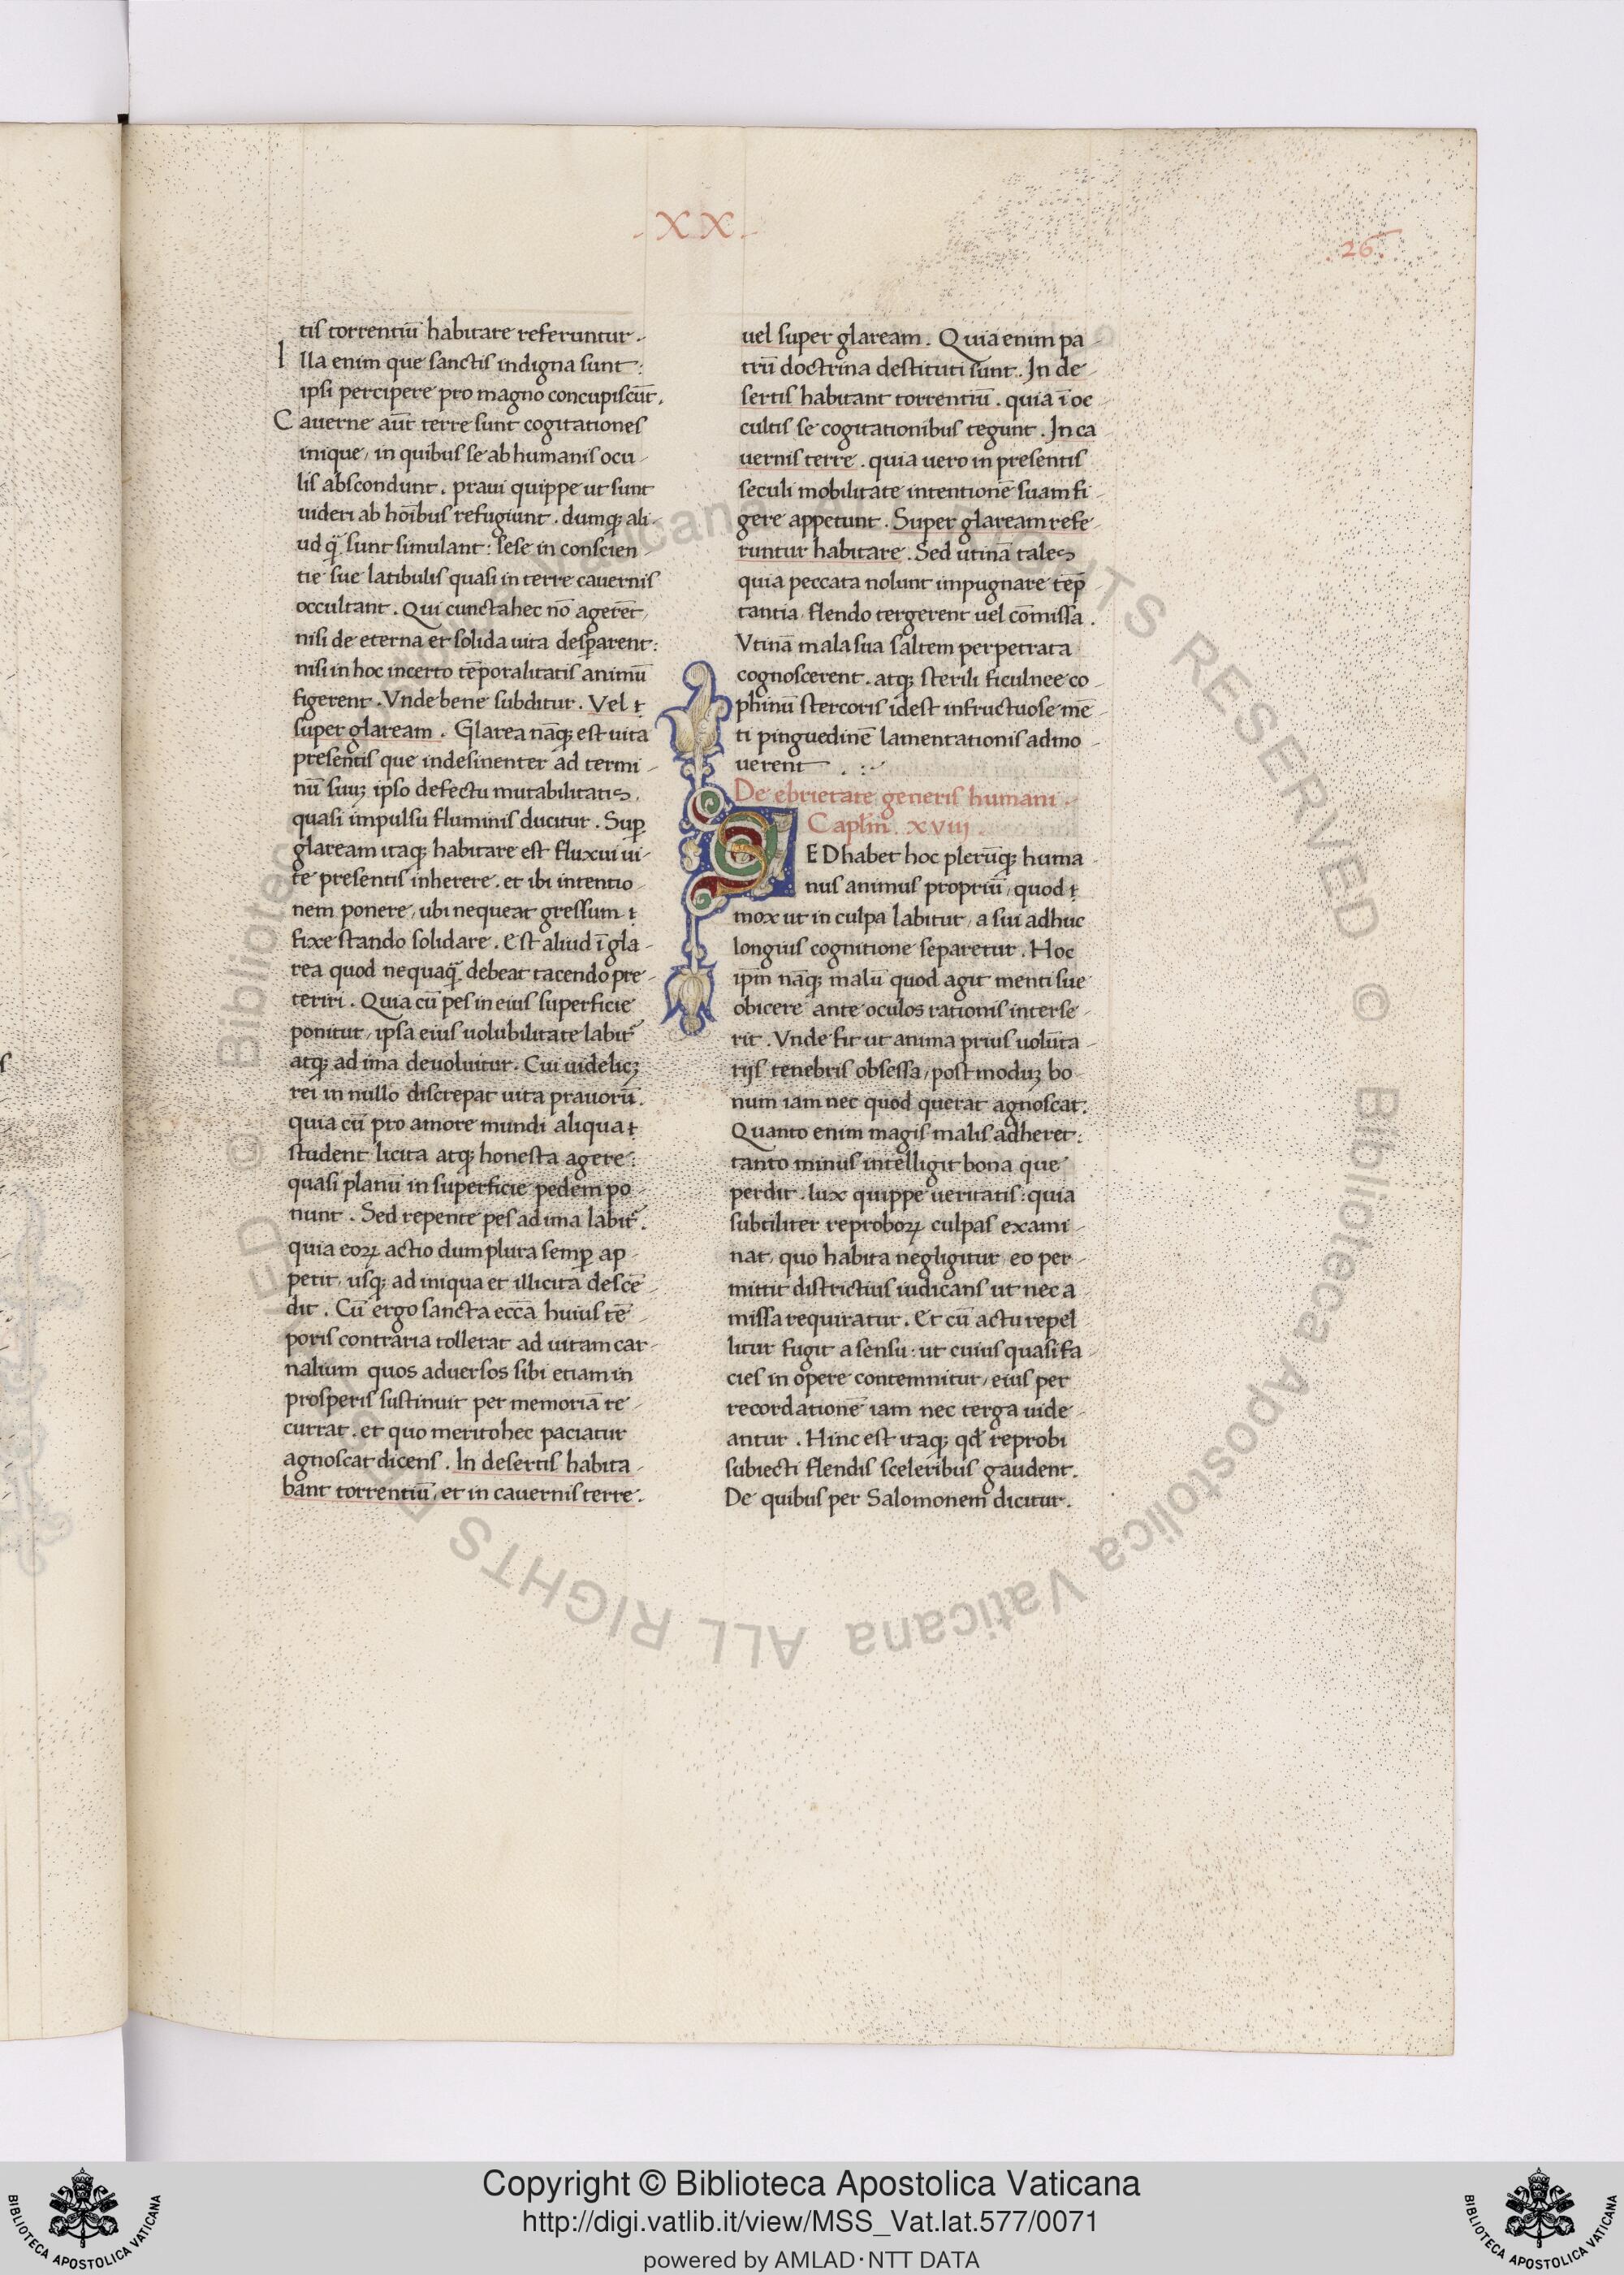 .XX.
.26.
tis torrentiū habitare referuntur.
Illa enim que sanctis indigna sunt:
ipsi percipere pro magno concupiscūt.
Cauerne aūt terre sunt cogitationes
inique, in quibus se ab humanis ocu-
lis abscondunt. praui quippe ut sunt
uideri ab hoībus refugiunt. dumq; ali-
ud q̄ sunt simulant: sese in conscien-
tie sue latibulis quasi in terre cauernis
occultant. Qui cuncta hec nō agerēt,
nisi de eterna et solida uita desꝑarent:
nisi in hoc incerto tēporalitatis animū
figerent. Vnde bene subditur. Vel
super glaream. Glarea nāq; est uita
presentis que indesinenter ad termi-
nū suuꝫ ipso defectu mutabilitatis.
quasi impulsu fluminis ducitur. Suꝑ
glaream itaq; habitare est fluxui ui-
te presentis inherere. et ibi intentio-
nem ponere, ubi nequeat gressum
fixe stando solidare. Est aliud ī gla-
rea quod nequaq̄ debeat tacendo pre-
teriri. Quia cū pes in eius superficie
ponitur, ipsa eius uolubilitate labit᷑
atq; ad ima deuoluitur. Cui uidelicꝫ
rei in nullo discrepat uita prauorū.
quia cū pro amore mundi aliqua
student licita atq; honesta agere:
quasi planū in superficie pedem po
nunt. Sed repente pes ad ima labit᷑.
quia eoꝝ actio dum plura semꝑ ap-
petit, usq; ad iniqua et illicita descē-
dit. Cū ergo sancta ecc̄a huius tē-
poris contraria tollerat ad uitam car-
nalium quos aduersos sibi etiam in
prosperis sustinuit per memoriā re-
currat. et quo merito hec paciatur
agnoscat dicens. In desertis habita-
bant torrentiū, et in cauernis terre.
uel super glaream. Quia enim pa-
trū doctrina destituti sunt. In de-
sertis habitant torrentiū. quia ī oc
cultis se cogitationibus tegunt. In ca
uernis terre. quia uero in presentis
seculi mobilitate intentionē suam fi-
gere appetunt. Super glaream refe-
runtur habitare. Sed utinā tales
quia peccata nolunt impugnare tēp
tantia, flendo tergerent uel cōmissa.
Vtinā mala sua saltem perpetrata
cognoscerent. atq; sterili ficulnee co-
phinū stercoris idest infructuose me-
ti pinguedinē lamentationis admo-
uerent.:-
De ebrietate generis humani.
Caplm̄. xviij.
SED habet hoc plerūq; huma-
nus animus propriū, quod
mox ut in culpa labitur, a sui adhuc
longius cognitione separetur. Hoc
ip̄m nāq; malū quod agit menti sue
obicere ante oculos rationis interse-
rit. Vnde fit ut anima prius uolūta-
rijs tenebris obsessa, post moduꝫ bo-
num iam nec quod querat agnoscat.
Quanto enim magis malis adheret:
tanto minus intelligit bona que
perdit. lux quippe ueritatis: quia
subtiliter reproboꝝ culpas exami-
nat, quo habita negligitur, eo per-
mittit districtius iudicans ut nec a
missa requiratur. Et cū actu repel
litur fugit a sensu: ut cuius quasi fa-
cies in opere contemnitur, eius per
recordationē iam nec terga uide-
antur. Hinc est itaq; qd̄ reprobi
subiecti flendis sceleribus gaudent.
De quibus per Salomonem dicitur.
Copyright © Biblioteca Apostolica Vaticana
http://digi.vatlib.it/view/MSS_Vat.lat.577/0071
powered by AMLAD·NTT DATA
BIBLIOTECA APOSTOLICA VATICANA
BIBLIOTECA APOSTOLICA VATICANA